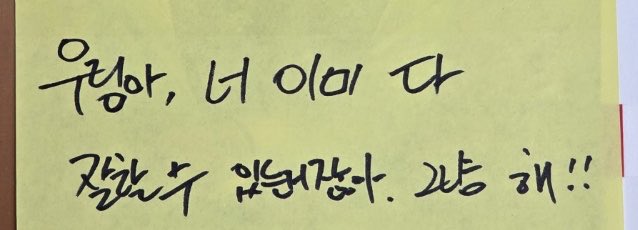 우렁아, 너 이미 다
잘할 수 있는거잖아. 그냥 해!!